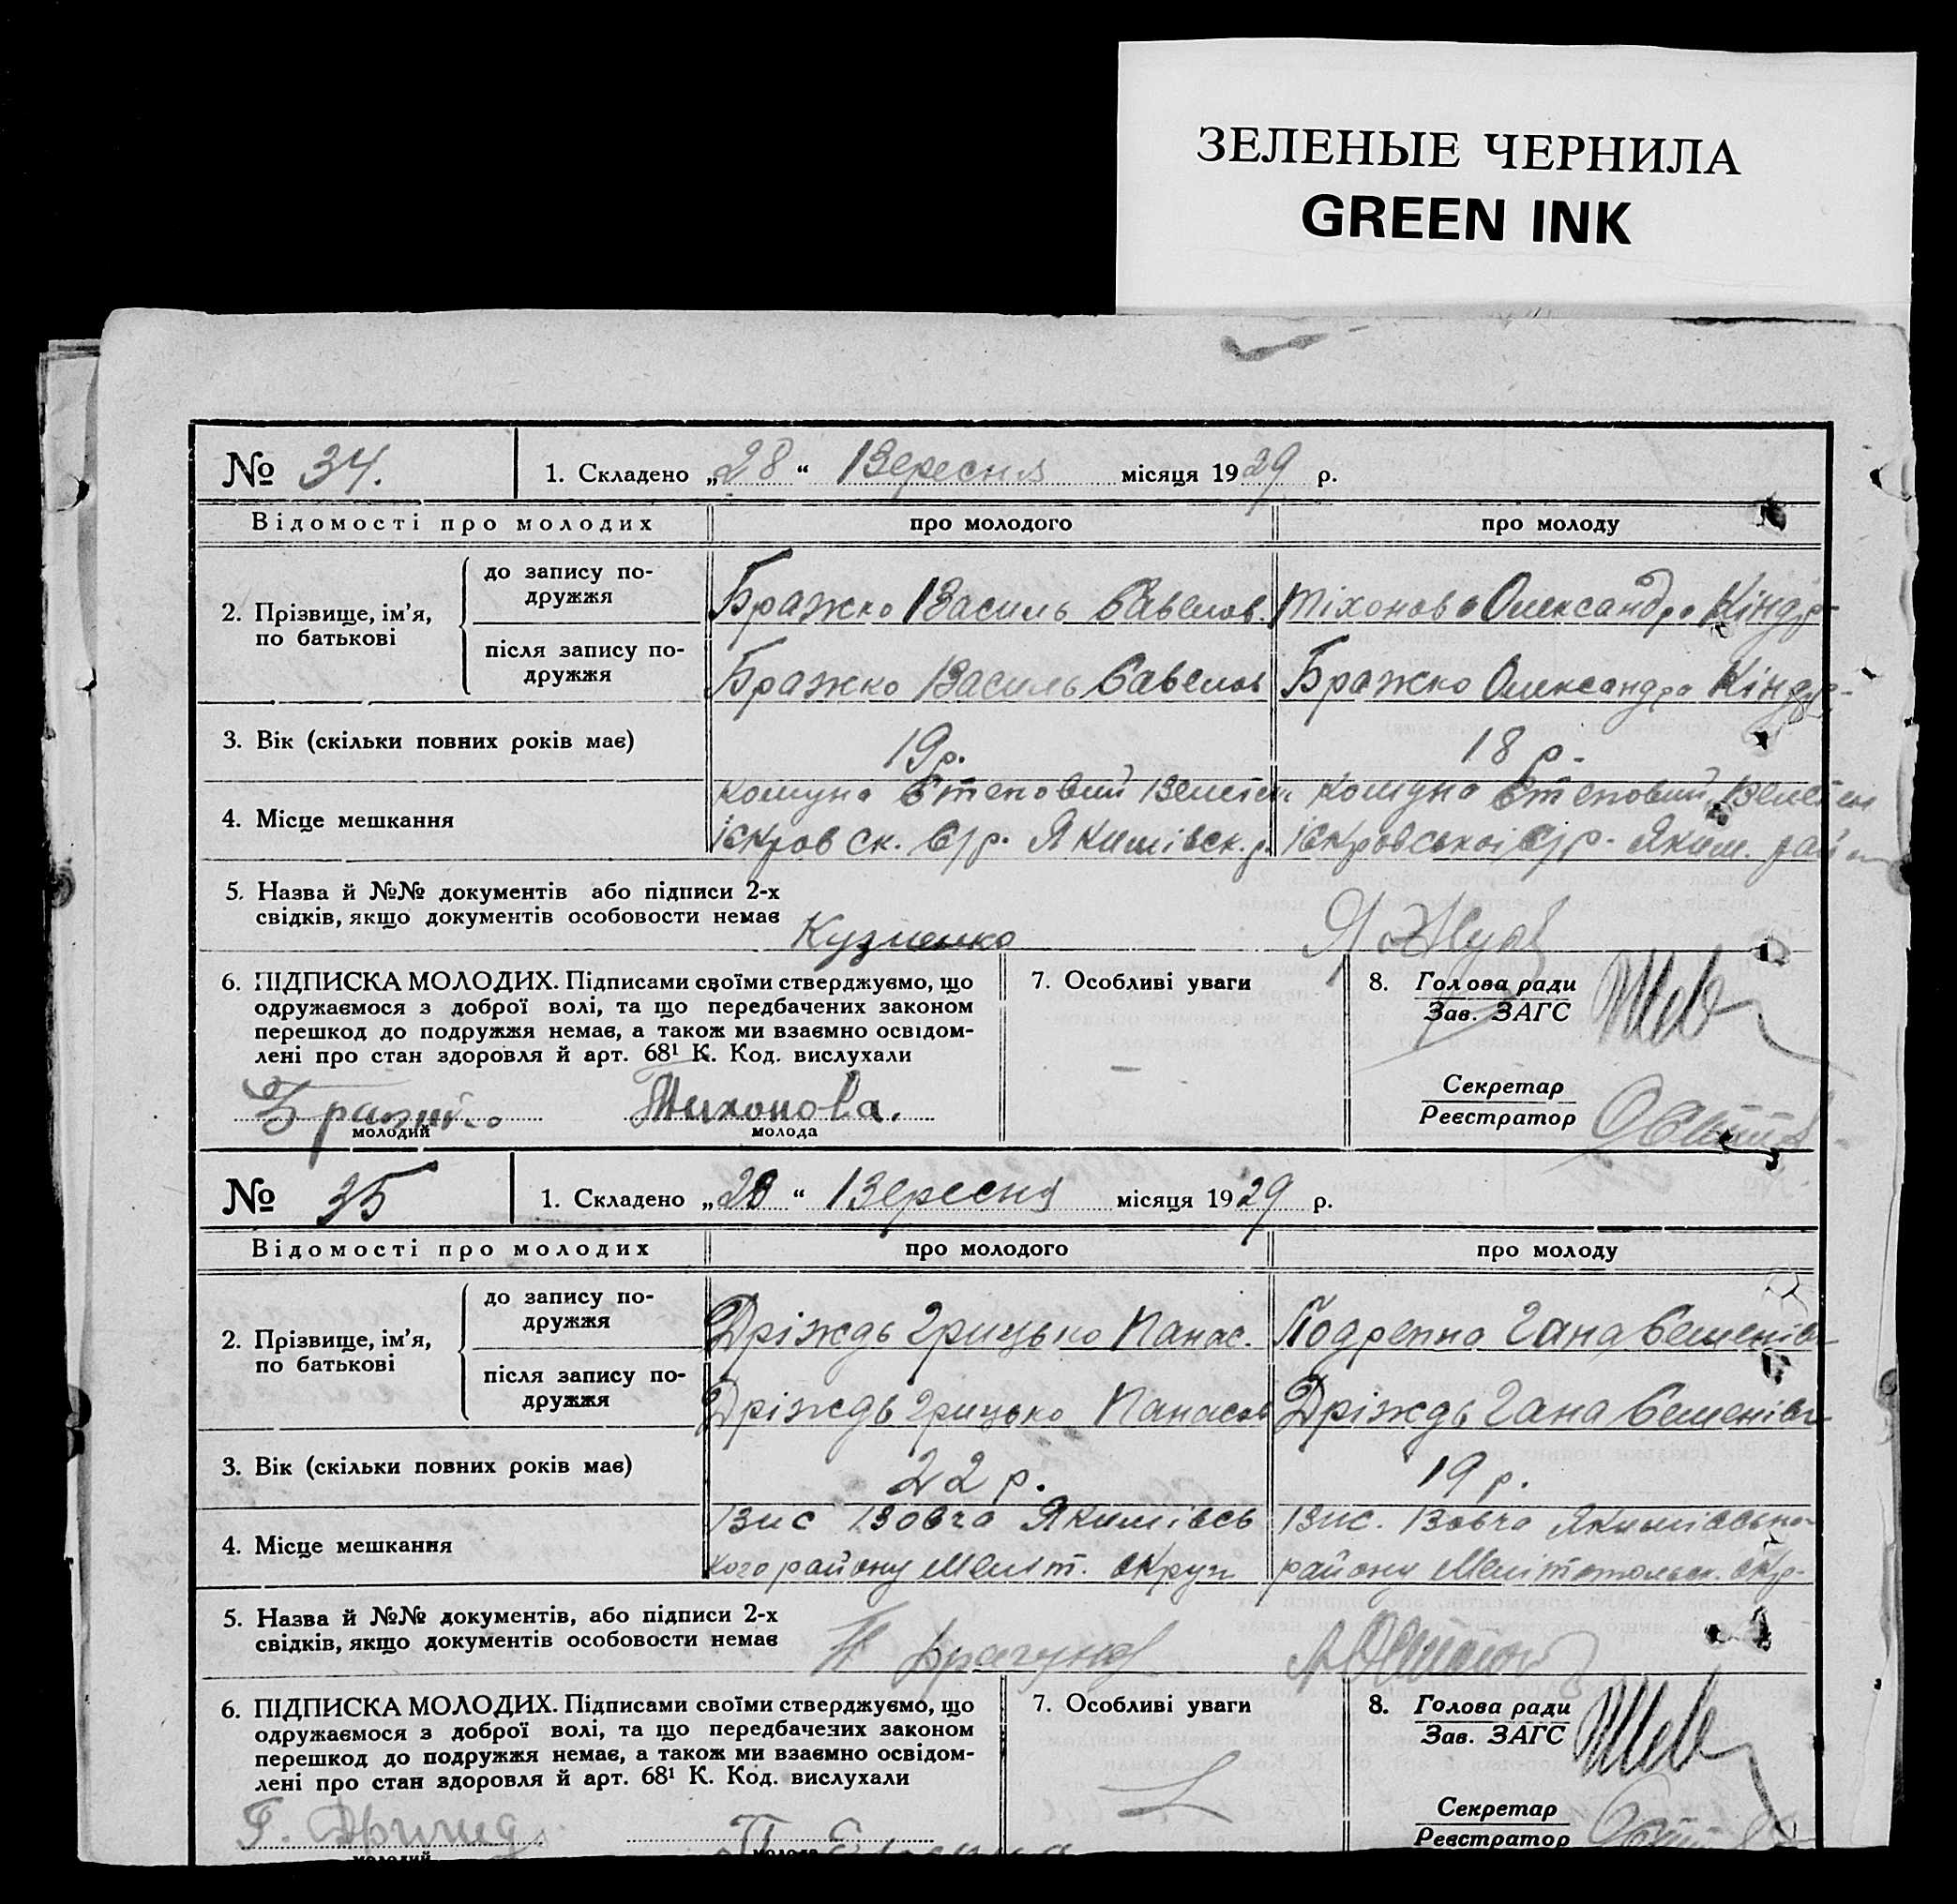 ЗЕЛЕНЫЕ ЧЕРНИЛА
GREEN INK
№ 34. 1. Складено „28“ Вересня місяця 1929 р.
Відомості про молодих про молодого про молоду
2. Прізвище, ім'я, по батькові
до запису подружжя
Бражко Василь Савелов. Тіхонова Олександра Кіндр-
після запису подружжя
Бражко Василь Савелов Бражко Олександра Кіндр-
3. Вік (скільки повних років має) 19 р. 18 р.
4. Місце мешкання
комуна Степовий Велетен комуна Степовий Велетен
Іскровск. С/р. Якимівск. р. Іскровської С/р. Яким. рай
5. Назва й №№ документів або підписи 2-х
свідків, якщо документів особовости немає Кузменко
6. ПІДПИСКА МОЛОДИХ. Підписами своїми стверджуємо, що
одружаємося з доброї волі, та що передбачених законом
перешкод до подружжя немає, а також ми взаємно освідом-
лені про стан здоровля й арт. 68¹ К. Код. вислухали
Бражко Тихонова.
молодий молода
7. Особливі уваги
8. Голова ради
Зав. ЗАГС
Секретар
Реєстратор
№ 35 1. Складено „28“ Вересня місяця 1929 р.
Відомості про молодих про молодого про молоду
2. Прізвище, ім'я, по батькові
до запису подружжя
Дріждь Грицько Панас. Подрепна Гана Семенівн
після запису подружжя
Дріждь Грицько Панасов Дріждь Гана Семенівн
3. Вік (скільки повних років має) 22 р. 19 р.
4. Місце мешкання
Вис Вовча Якимівсь Вис. Вовча Якимівсько
кого району Меліт. округи району Мелітопольск. окр.
5. Назва й №№ документів, або підписи 2-х
свідків, якщо документів особовости немає
6. ПІДПИСКА МОЛОДИХ. Підписами своїми стверджуємо, що
одружаємося з доброї волі, та що передбачених законом
перешкод до подружжя немає, а також ми взаємно освідом-
лені про стан здоровля й арт. 68¹ К. Код. вислухали
молодий молода
7. Особливі уваги
8. Голова ради
Зав. ЗАГС
Секретар
Реєстратор